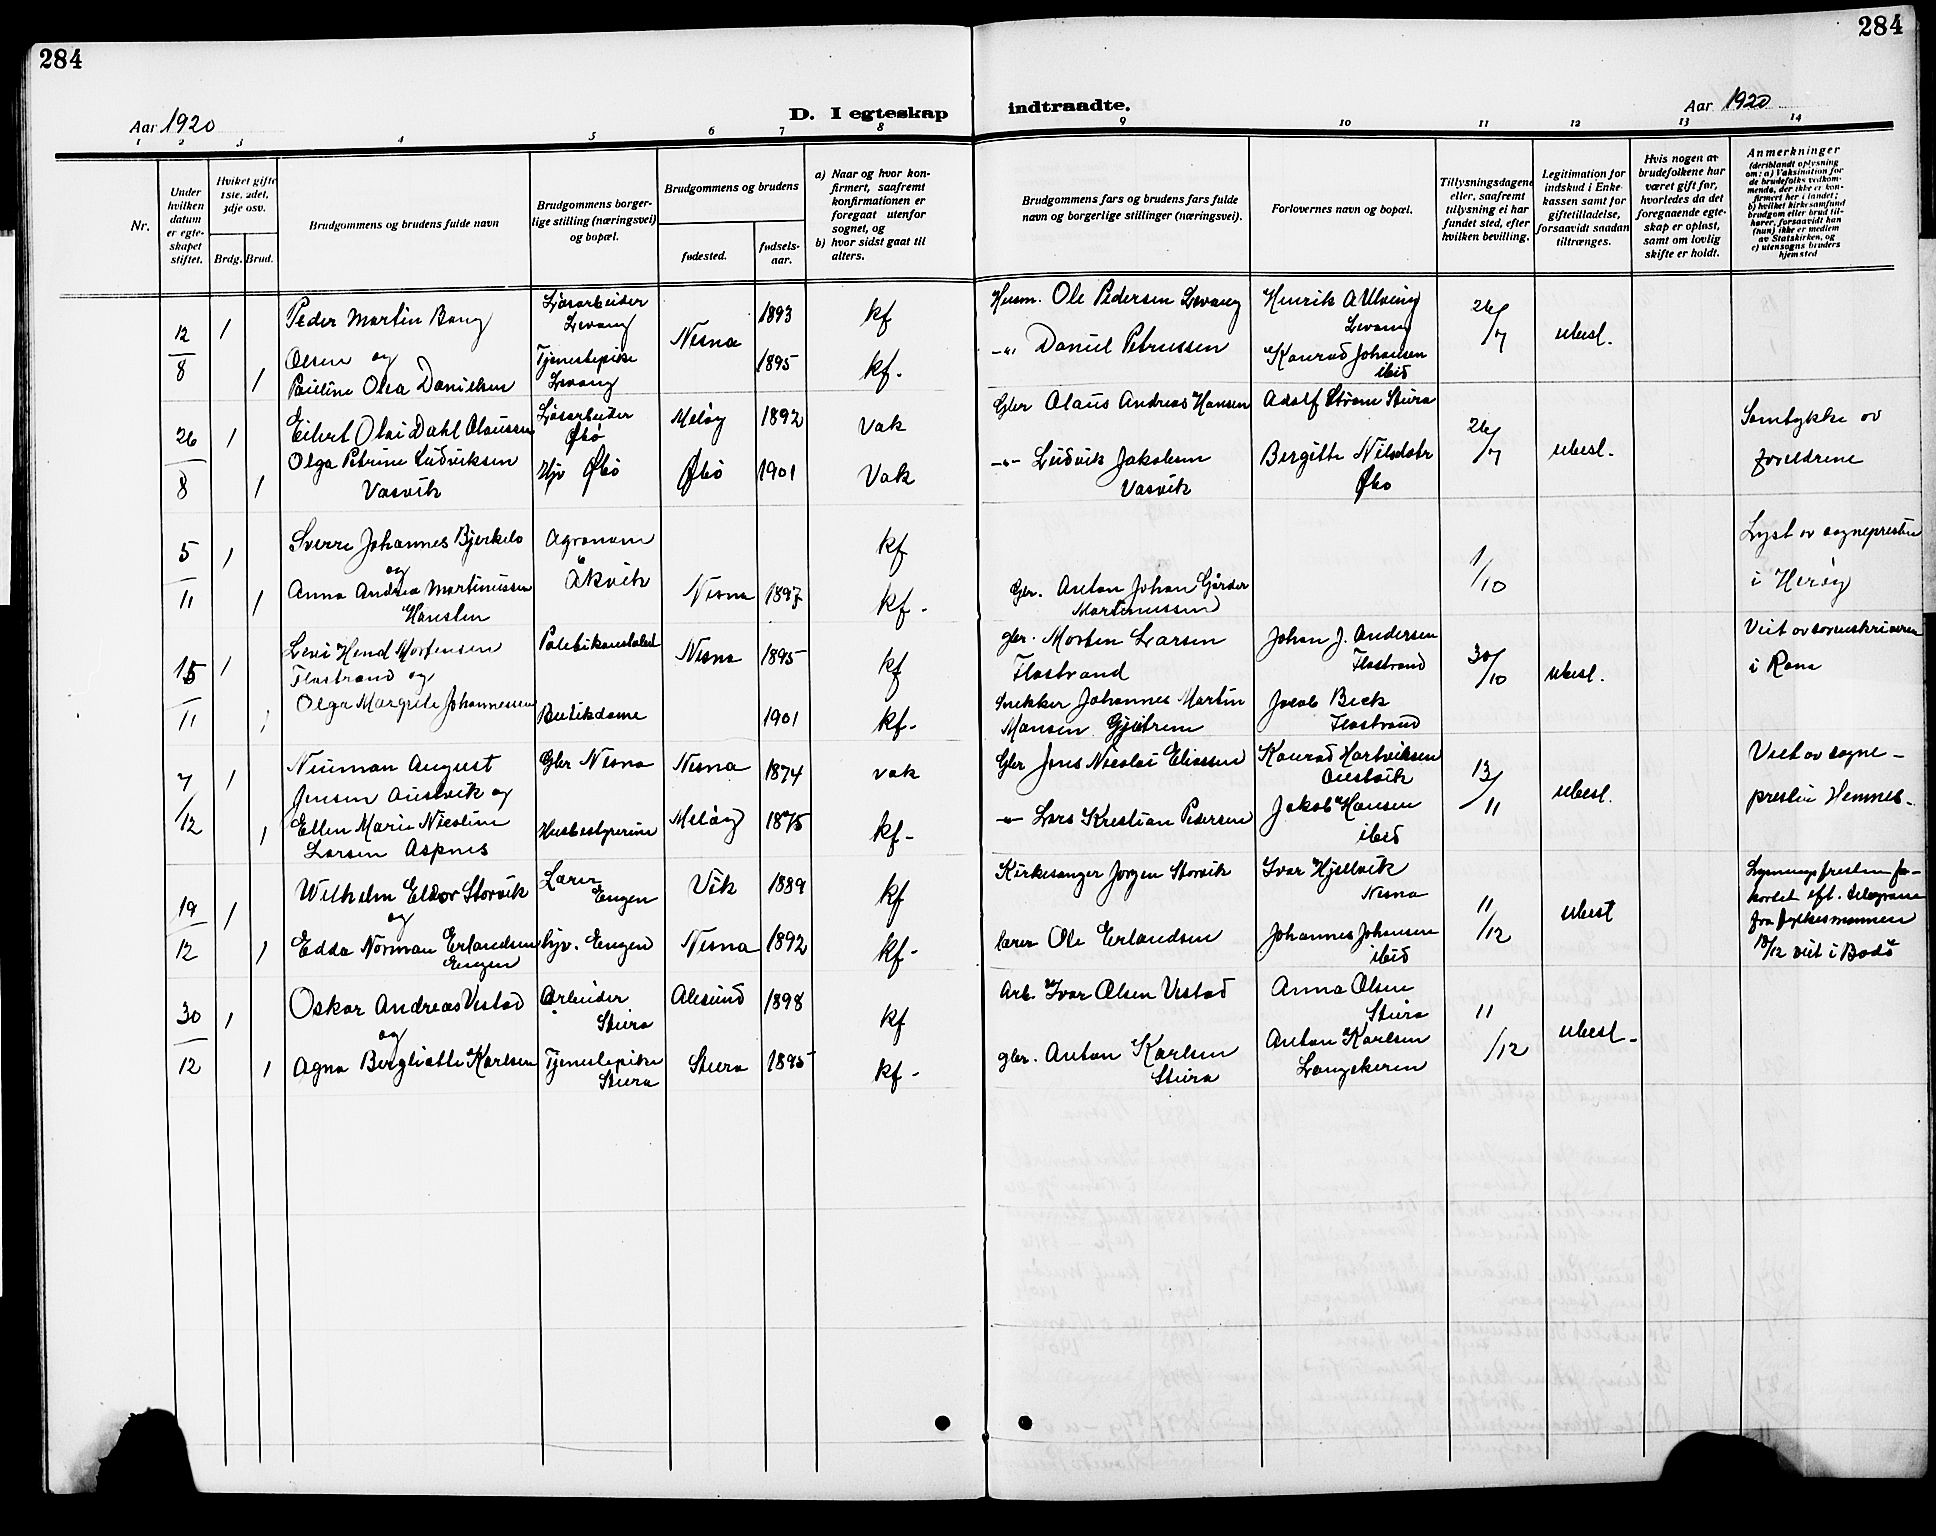 284
284
Aar 1920
D. I egteskap
indtraadte.
Aar 1920
1 2 3 4 5 6 7 8 9 10 11 12 13 14
Nr.
Under hvilken datum er egteskapet stiftet.
Hvilket gifte 1ste, 2det, 3dje osv.
Brdg. Brud.
Brudgommens og brudens fulde navn
Brudgommens borgerlige stilling (næringsvei) og bopæl.
Brudgommens og brudens
fødested.
fødselsaar.
a) Naar og hvor konfirmert, saafremt konfirmationen er foregaat utenfor sognet, og
b) hvor sidst gaat til alters.
Brudgommens fars og brudens fars fulde navn og borgerlige stillinger (næringsvei).
Forlovernes navn og bopæl.
Tillysningsdagene eller, saafremt tillysning ei har fundet sted, efter hvilken bevilling.
Legitimation for indskud i Enkekassen samt for giftetilladelse, forsaavidt saadan tiltrænges.
Hvis nogen av brudefolkene har været gift før, hvorledes da det foregaaende egteskap er opløst, samt om lovlig skifte er holdt.
Anmerkninger
(deriblandt oplysning om: a) Vaksination for de brudefolks vedkommende, der ikke er konfirmert her i landet; b) hvilket kirkesamfund brudgom eller brud tilhører, forsaavidt han (hun) ikke er medlem av Statskirken, og c) utensogns bruders hjemsted
12/8 1 Peder Martin Bang Olsen og Løsarbeider Levang Nesna 1893 kf Husm. Ole Pedersen Levang Henrik A Ulving Levang 26/7 ubesl.
1 Pauline Olea Danielsen Tjenestepike Levang 1895 kf. -"- Daniel Petrussen Konrad Johansen ibid
26/8 1 Eilert Olai Dahl Olaussen Løsarbeider Øbø Meløy 1892 Vak Gbr Olaus Andreas Hansen Adolf Strøm Stiura 26/7 ubesl. Samtykke av
1 Olga Petrine Ludviksen Vasvik Hjv Øbø Øbø 1901 Vak -"- Ludvik Jakobsen Vasvik Bergitte Nilsdatr Øbø forældrene
5/11 1 Sverre Johannes Bjerkelo og Agronom Åkvik kf 1/10 Lyst av sognepresten
1 Anna Andrea Martinussen Hansten Nesna 1897 kf. Gbr. Anton Johan Gjørder Martinussen i Herøy
15/11 1 Levi Hend Mortensen Flostrand og Politikonstabel Nesna 1895 kf gbr. Morten Larsen Flostrand Johan J. Andersen Flostrand 30/10 ubesl. Viet av sorenskriveren
1 Olga Margrete Johannessen Butikdame 1901 kf. Snekker Johannes Martin Hansen Gjestrem Jacob Beck Flostrand i Rana
7/12 1 Neuman August Jensen Austvik og Gbr Nesna Nesna 1874 vak Gbr Jens Nicolai Eliassen Konrad Hartviksen Austvik 13/11 ubesl. Viet av sogne-
1 Ellen Marie Nicoline Larsen Aspnes Husbestyrerinne Meløy 1875 kf. -"- Lars Kristian Pedersen Jakob Hansen ibid presten Hemnes.
19/12 1 Wilhelm Eldor Storvik og Lærer Engen Vik 1889 kf Kirkesanger Jørgen Storvik Ivar Hjellvik Nesna 11/12 ubesl Lysningsfristen forkortet eft. telegram
1 Edda Norman Erlandsen Engen hjv. Engen Nesna 1892 kf. lærer Ole Erlandsen Johannes Johansen ibid fra fylkesmannen 18/12 viet i Bodø
30/12 1 Oskar Andreas Vestad og Arbeider Stiura Ålesund 1898 kf Arb. Ivar Olsen Vestad Anna Olsen Stiura 11/12 ubesl.
1 Agna Bergliotte Karlsen Tjenestepike Stiura Stiura 1895 kf. gbr. Anton Karlsen Stiura Anton Karlsen